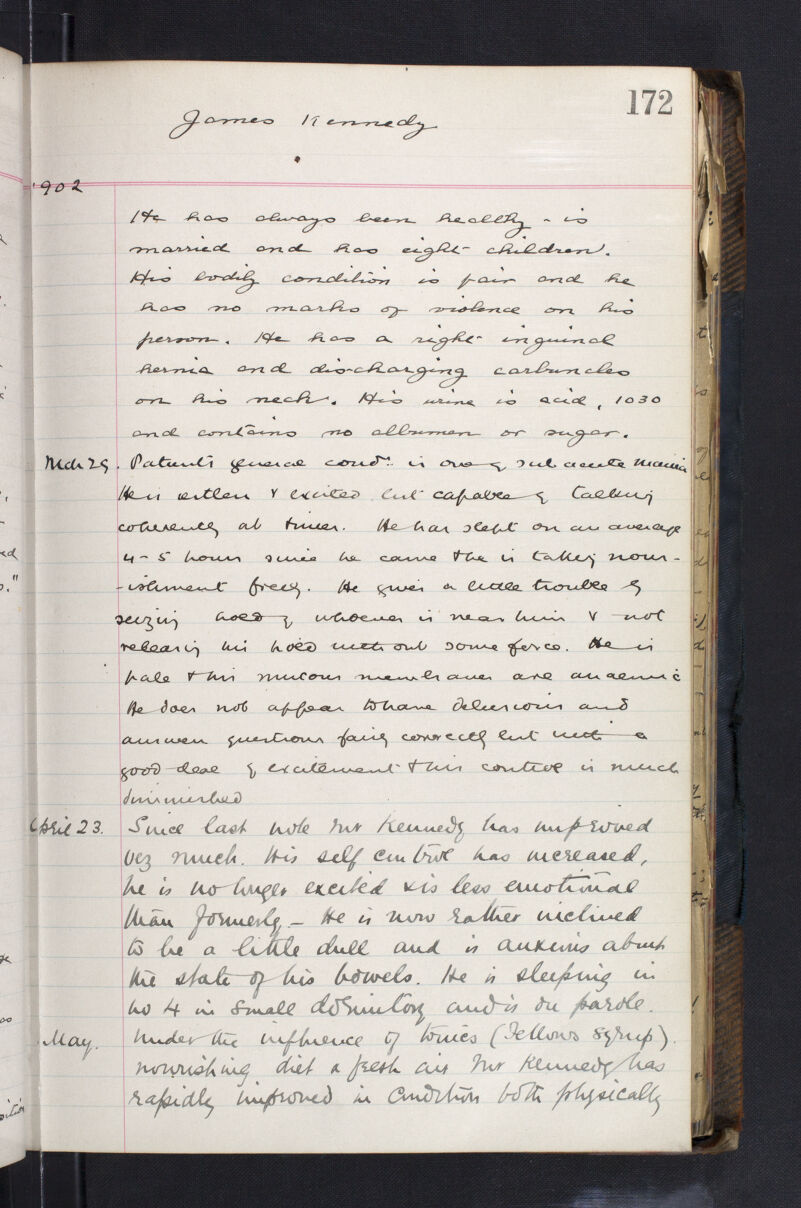 172
James Kennedy
1902
He has always been healthy - is
married and has eight children.
His bodily condition is fair and he
has no marks of violence on his
person. He has a right inguinal
hernia and discharging carbuncles
on his neck. His urine is acid, 1030
and contains no albumen or sugar.
Mch 29. Patients general condn. is one of subacute mania
He is restless & excited but capable of talking
coherently at times. He has slept on an average
4-5 hours since he came & he is taking nour-
-ishment freely. He gives a little trouble by
seizing hold of whoever is near him & not
releasing his hold without some force. He is
pale & his mucous membranes are anaemic
He does not appear to have delusions and
answers questions fairly correctly but with a
good deal of excitement & his control is much
diminished
April 23. Since last note Mr Kennedy has improved
very much. His self control has increased,
he is no longer excited & is less emotional
than formerly - He is now rather inclined
to be a little dull and is anxious about
the state of his bowels. He is sleeping in
no 4 in small dormitory and is on parole.
May. Under the influence of tonics (Fellows Syrup).
nourishing diet & fresh air Mr Kennedy has
rapidly improved in condition both physically